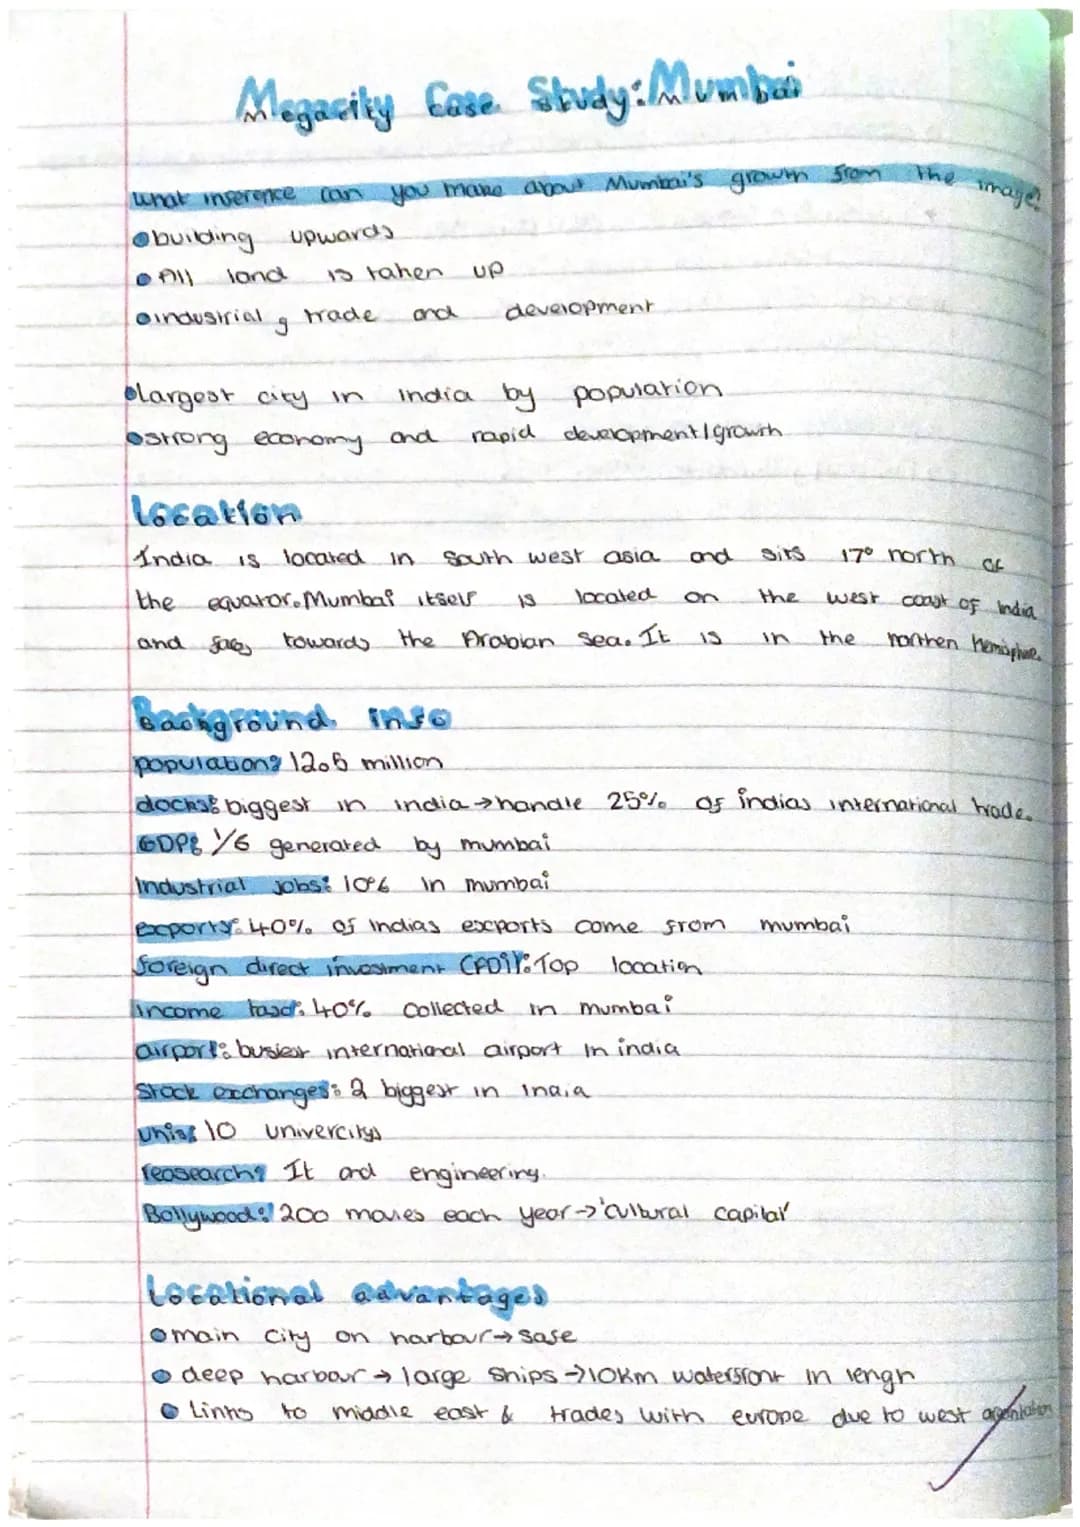 Megacity Case Study: Mumbai
what inference can you make about Mumbai's growth from the image?
building upwards
All land is taken up
industrial, trade and development
largest city in India by population
strong economy and rapid development/growth
Location
India is located in South west asia and sits 17° north of
the equator. Mumbai itself is located on the west coast of India
and faces towards the Arabian Sea. It is in the northen Hemisphere.
Background info
population: 12.5 million
docks: biggest in india → handle 25% of indias international trade.
GDP: 1/6 generated by mumbai
Industrial jobs: 10% in mumbai
exports: 40% of Indias exports come from mumbai
foreign direct investment (FDI): Top location
income tax: 40% collected in mumbai
airport: busiest international airport in india
Stock exchanges: 2 biggest in india
unis: 10 univercitys
reasearch: It and engineering.
Bollywood: 200 movies each year → 'cultural capital'
Locational advantages
main city on harbour → safe
deep harbour → large ships → 10km waterfront in lengh
Links to middle east & trades with europe due to west